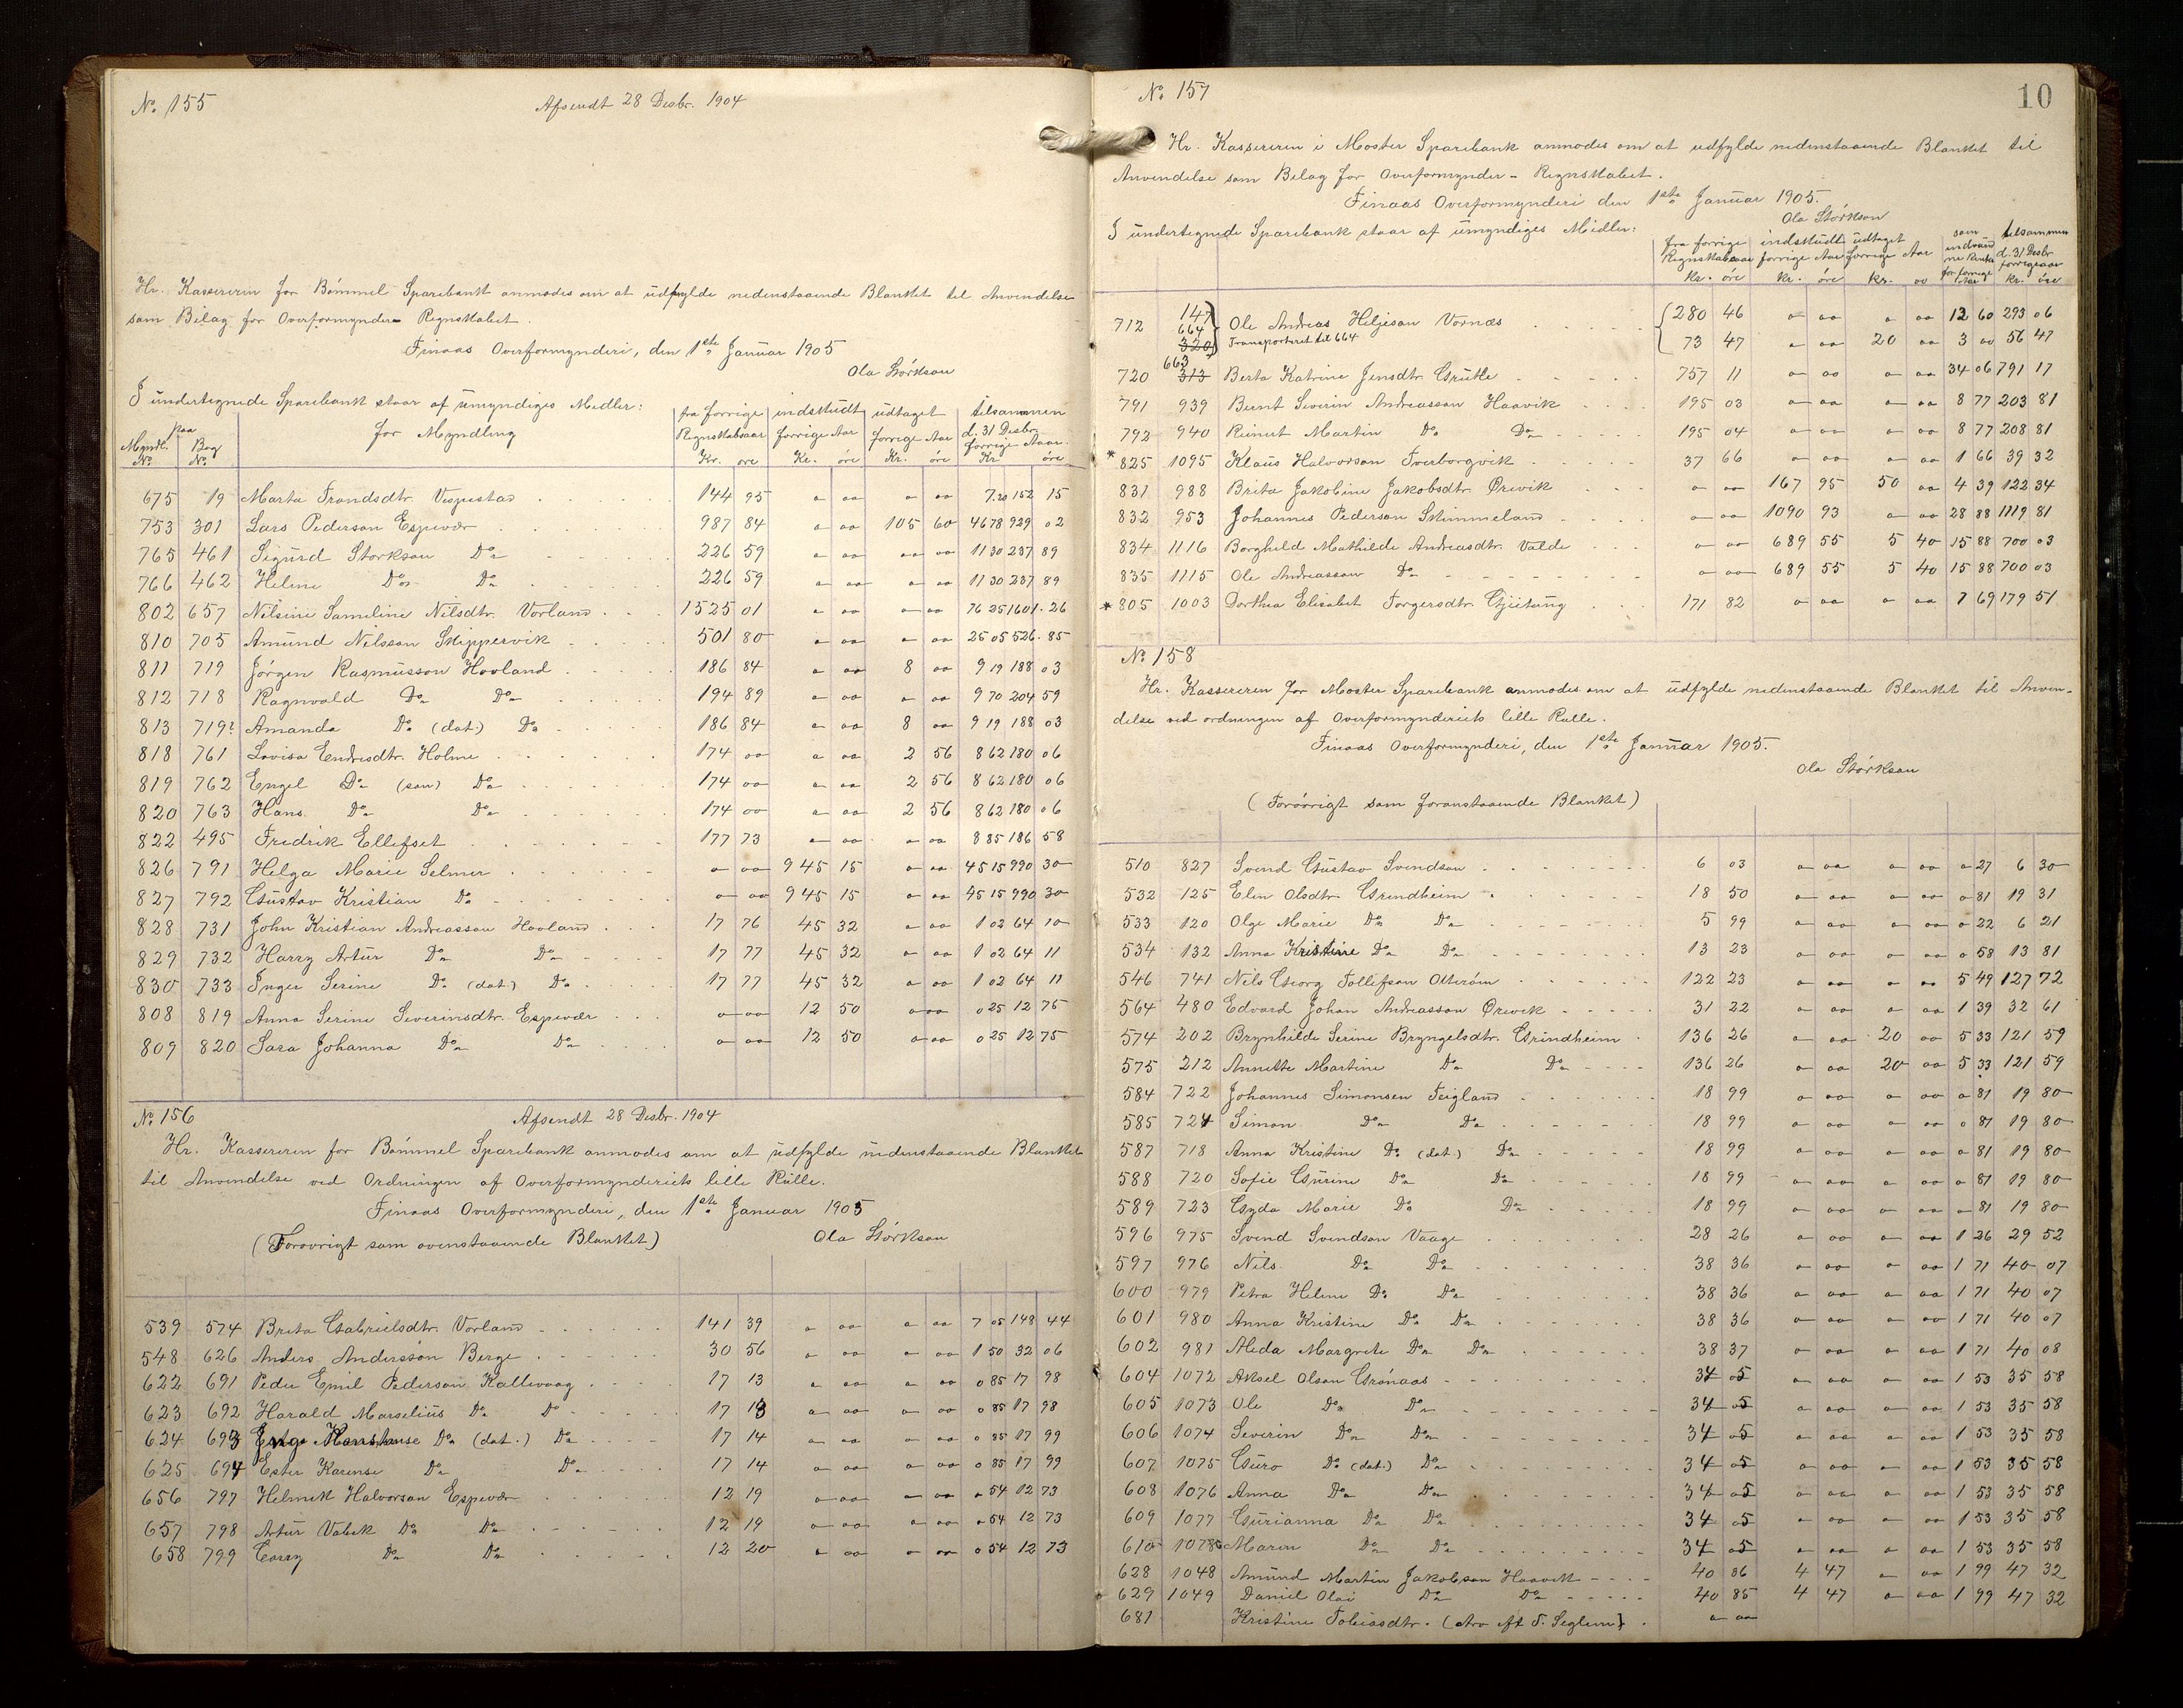 No. 155 Afsendt 28 Desbr. 1904
Hr. Kassereren for Bømmel Sparebank anmodes om at udfylde nedenstaaende Blanket til Anvendelse
som Bilag for Overformynder-Regnskabet.
Finaas Overformynderi, den 1ste Januar 1905
Ola Størkson
I undertegnede Sparebank staar af umyndiges Midler:
Myndl. No. paa Bog No. for Myndling fra forrige Regnskabsaar Kr. øre indskudt forrige Aar Kr. øre udtaget forrige Aar Kr. øre tilsammen d. 31 Desbr. forrige Aar Kr. øre
675 19 Marta Trondsdtr. Vespestad 144 95 0 00 0 00 7.20 152 15
753 301 Lars Pederson Espevær 987 84 0 00 105 60 46 78 929 02
765 461 Sigurd Størkson Do 226 59 0 00 0 00 11 30 237 89
766 462 Helene Do Do 226 59 0 00 0 00 11 30 237 89
802 657 Nilsine Sameline Nilsdtr. Vorland 1525 01 0 00 0 00 76 25 1601.26
810 705 Amund Nilsson Skippervik 501 80 0 00 0 00 25 05 526.85
811 719 Jørgen Rasmusson Hovland 186 84 0 00 8 00 9 19 188 03
812 718 Ragnvald Do Do 194 89 0 00 0 00 9 70 204 59
813 719? Amanda Do (dat.) Do 186 84 0 00 8 00 9 19 188 03
818 761 Lovisa Endresdtr. Holme 174 00 0 00 2 56 8 62 180 06
819 762 Engel Do (søn) Do 174 00 0 00 2 56 8 62 180 06
820 763 Hans Do Do 174 00 0 00 2 56 8 62 180 06
822 495 Fredrik Ellefset 177 73 0 00 0 00 8 85 186 58
826 791 Helga Marie Selmer 0 00 945 15 0 00 45 15 990 30
827 792 Gustav Kristian Do 0 00 945 15 0 00 45 15 990 30
828 731 John Kristian Andreasson Hovland 17 76 45 32 0 00 1 02 64 10
829 732 Harry Artur Do Do 17 77 45 32 0 00 1 02 64 11
830 733 Inger Serine Do (dat.) Do 17 77 45 32 0 00 1 02 64 11
808 819 Anna Serine Severinsdtr. Espevær 0 00 12 50 0 00 0 25 12 75
809 820 Sara Johanna Do Do 0 00 12 50 0 00 0 25 12 75
No. 156 Afsendt 28 Desbr. 1904
Hr. Kassereren for Bømmel Sparebank anmodes om at udfylde nedenstaaende Blanket
til Anvendelse ved Ordningen af Overformynderiets lille Rulle.
Finaas Overformynderi, den 1ste Januar 1905
(Forøvrigt som ovenstaaende Blanket) Ola Størkson
539 574 Brita Gabrielsdtr. Vorland 141 39 0 00 0 00 7 05 148 44
548 626 Anders Andersson Berge 30 56 0 00 0 00 1 50 32 06
622 691 Peder Emil Pederson Kallevaag 17 13 0 00 0 00 0 85 17 98
623 692 Harald Marselius Do Do 17 13 0 00 0 00 0 85 17 98
624 693 Do (dat.) Do 17 14 0 00 0 00 0 85 17 99
625 694 Ester Karense Do Do 17 14 0 00 0 00 0 85 17 99
656 797 Helmik Halvorson Espevær 12 19 0 00 0 00 0 54 12 73
657 798 Artur Do Do 12 19 0 00 0 00 0 54 12 73
658 799 Do Do 12 20 0 00 0 00 0 54 12 73
No. 157 10
Hr. Kassereren i Moster Sparebank anmodes om at udfylde nedenstaaende Blanket til
Anvendelse som Bilag for Overformynder-Regnskabet.
Finaas Overformynderi den 1ste Januar 1905.
Ola Størkson
I undertegnede Sparebank staar af umyndiges Midler:
fra forrige Regnskabsaar Kr. øre indskudt forrige Aar Kr. øre udtaget forrige Aar Kr. øre som indvundne Renter for forrige Aar tilsammen d. 31 Desbr forrige aar Kr. øre
712 147 664 Ole Andreas Heljeson Vornæs 280 46 0 00 0 00 12 60 293 06
320 Transporteret til 664 73 47 0 00 20 00 3 00 56 47
720 663 313 Berta Katrine Jensdtr. Grutle 757 11 0 00 0 00 34 06 791 17
791 939 Bernt Severin Andreasson Haavik 195 03 0 00 0 00 8 77 203 81
792 940 Reinert Martin Do Do 195 04 0 00 0 00 8 77 203 81
* 825 1095 Klaus Halvorson Toverborgvik 37 66 0 00 0 00 1 66 39 32
831 988 Brita Jakobine Jakobsdtr. Ørevik 0 00 167 95 50 00 4 39 122 34
832 953 Johannes Pederson Skimmeland 0 00 1090 93 0 00 28 88 1119 81
834 1116 Borghild Mathilde Andreasdtr. Valde 0 00 689 55 5 40 15 88 700 03
835 1115 Ole Andreasson Do 0 00 689 55 5 40 15 88 700 03
* 805 1003 Dorthea Elisabet Torgersdtr. Gjeitung 171 82 0 00 0 00 7 69 179 51
No. 158
Hr. Kassereren for Moster Sparebank anmodes om at udfylde nedenstaaende Blanket til Anven-
delse ved ordningen af Overformynderiets lille Rulle.
Finaas Overformynderi, den 1ste Januar 1905.
Ola Størkson
(Forøvrigt som foranstaaende Blanket)
510 827 Svend Gustav Svendson 6 03 0 00 0 00 0 27 6 30
532 125 Elen Olsdtr. Grindheim 18 50 0 00 0 00 0 81 19 31
533 120 Olge Marie Do Do 5 99 0 00 0 00 0 22 6 21
534 132 Anna Kristine Do Do 13 23 0 00 0 00 0 58 13 81
546 741 Nils Georg Tollefson Otterøen 122 23 0 00 0 00 5 49 127 72
564 480 Edvard Johan Andreasson Ørevik 31 22 0 00 0 00 1 39 32 61
574 202 Brynhilde Serine Bryngelsdtr. Grindheim 136 26 0 00 20 00 5 33 121 59
575 212 Annette Martine Do Do 136 26 0 00 20 00 5 33 121 59
584 722 Johannes Simonsen Teigland 18 99 0 00 0 00 0 81 19 80
585 724 Simon Do Do 18 99 0 00 0 00 0 81 19 80
587 718 Anna Kristine Do (dat.) Do 18 99 0 00 0 00 0 81 19 80
588 720 Sofie Gurine Do Do 18 99 0 00 0 00 0 81 19 80
589 723 Gyda Marie Do Do 18 99 0 00 0 00 0 81 19 80
596 975 Svend Svendson Vaage 28 26 0 00 0 00 1 26 29 52
597 976 Nils Do Do 38 36 0 00 0 00 1 71 40 07
600 979 Petra Helene Do Do 38 36 0 00 0 00 1 71 40 07
601 980 Anna Kristine Do Do 38 36 0 00 0 00 1 71 40 07
602 981 Aleda Margrete Do Do 38 37 0 00 0 00 1 71 40 08
604 1072 Aksel Olson Grønaas 34 05 0 00 0 00 1 53 35 58
605 1073 Ole Do Do 34 05 0 00 0 00 1 53 35 58
606 1074 Severin Do Do 34 05 0 00 0 00 1 53 35 58
607 1075 Guro Do (dat.) Do 34 05 0 00 0 00 1 53 35 58
608 1076 Anna Do Do 34 05 0 00 0 00 1 53 35 58
609 1077 Gurianna Do Do 34 05 0 00 0 00 1 53 35 58
610 1078 Maren Do Do 34 05 0 00 0 00 1 53 35 58
628 1048 Amund Martin Jakobson Haavik 40 86 4 47 0 00 1 99 47 32
629 1049 Daniel Olai Do Do 40 85 4 47 0 00 1 99 47 32
681 Kristine Tobiasdtr. (Arv aft S. Seglem) 0 00